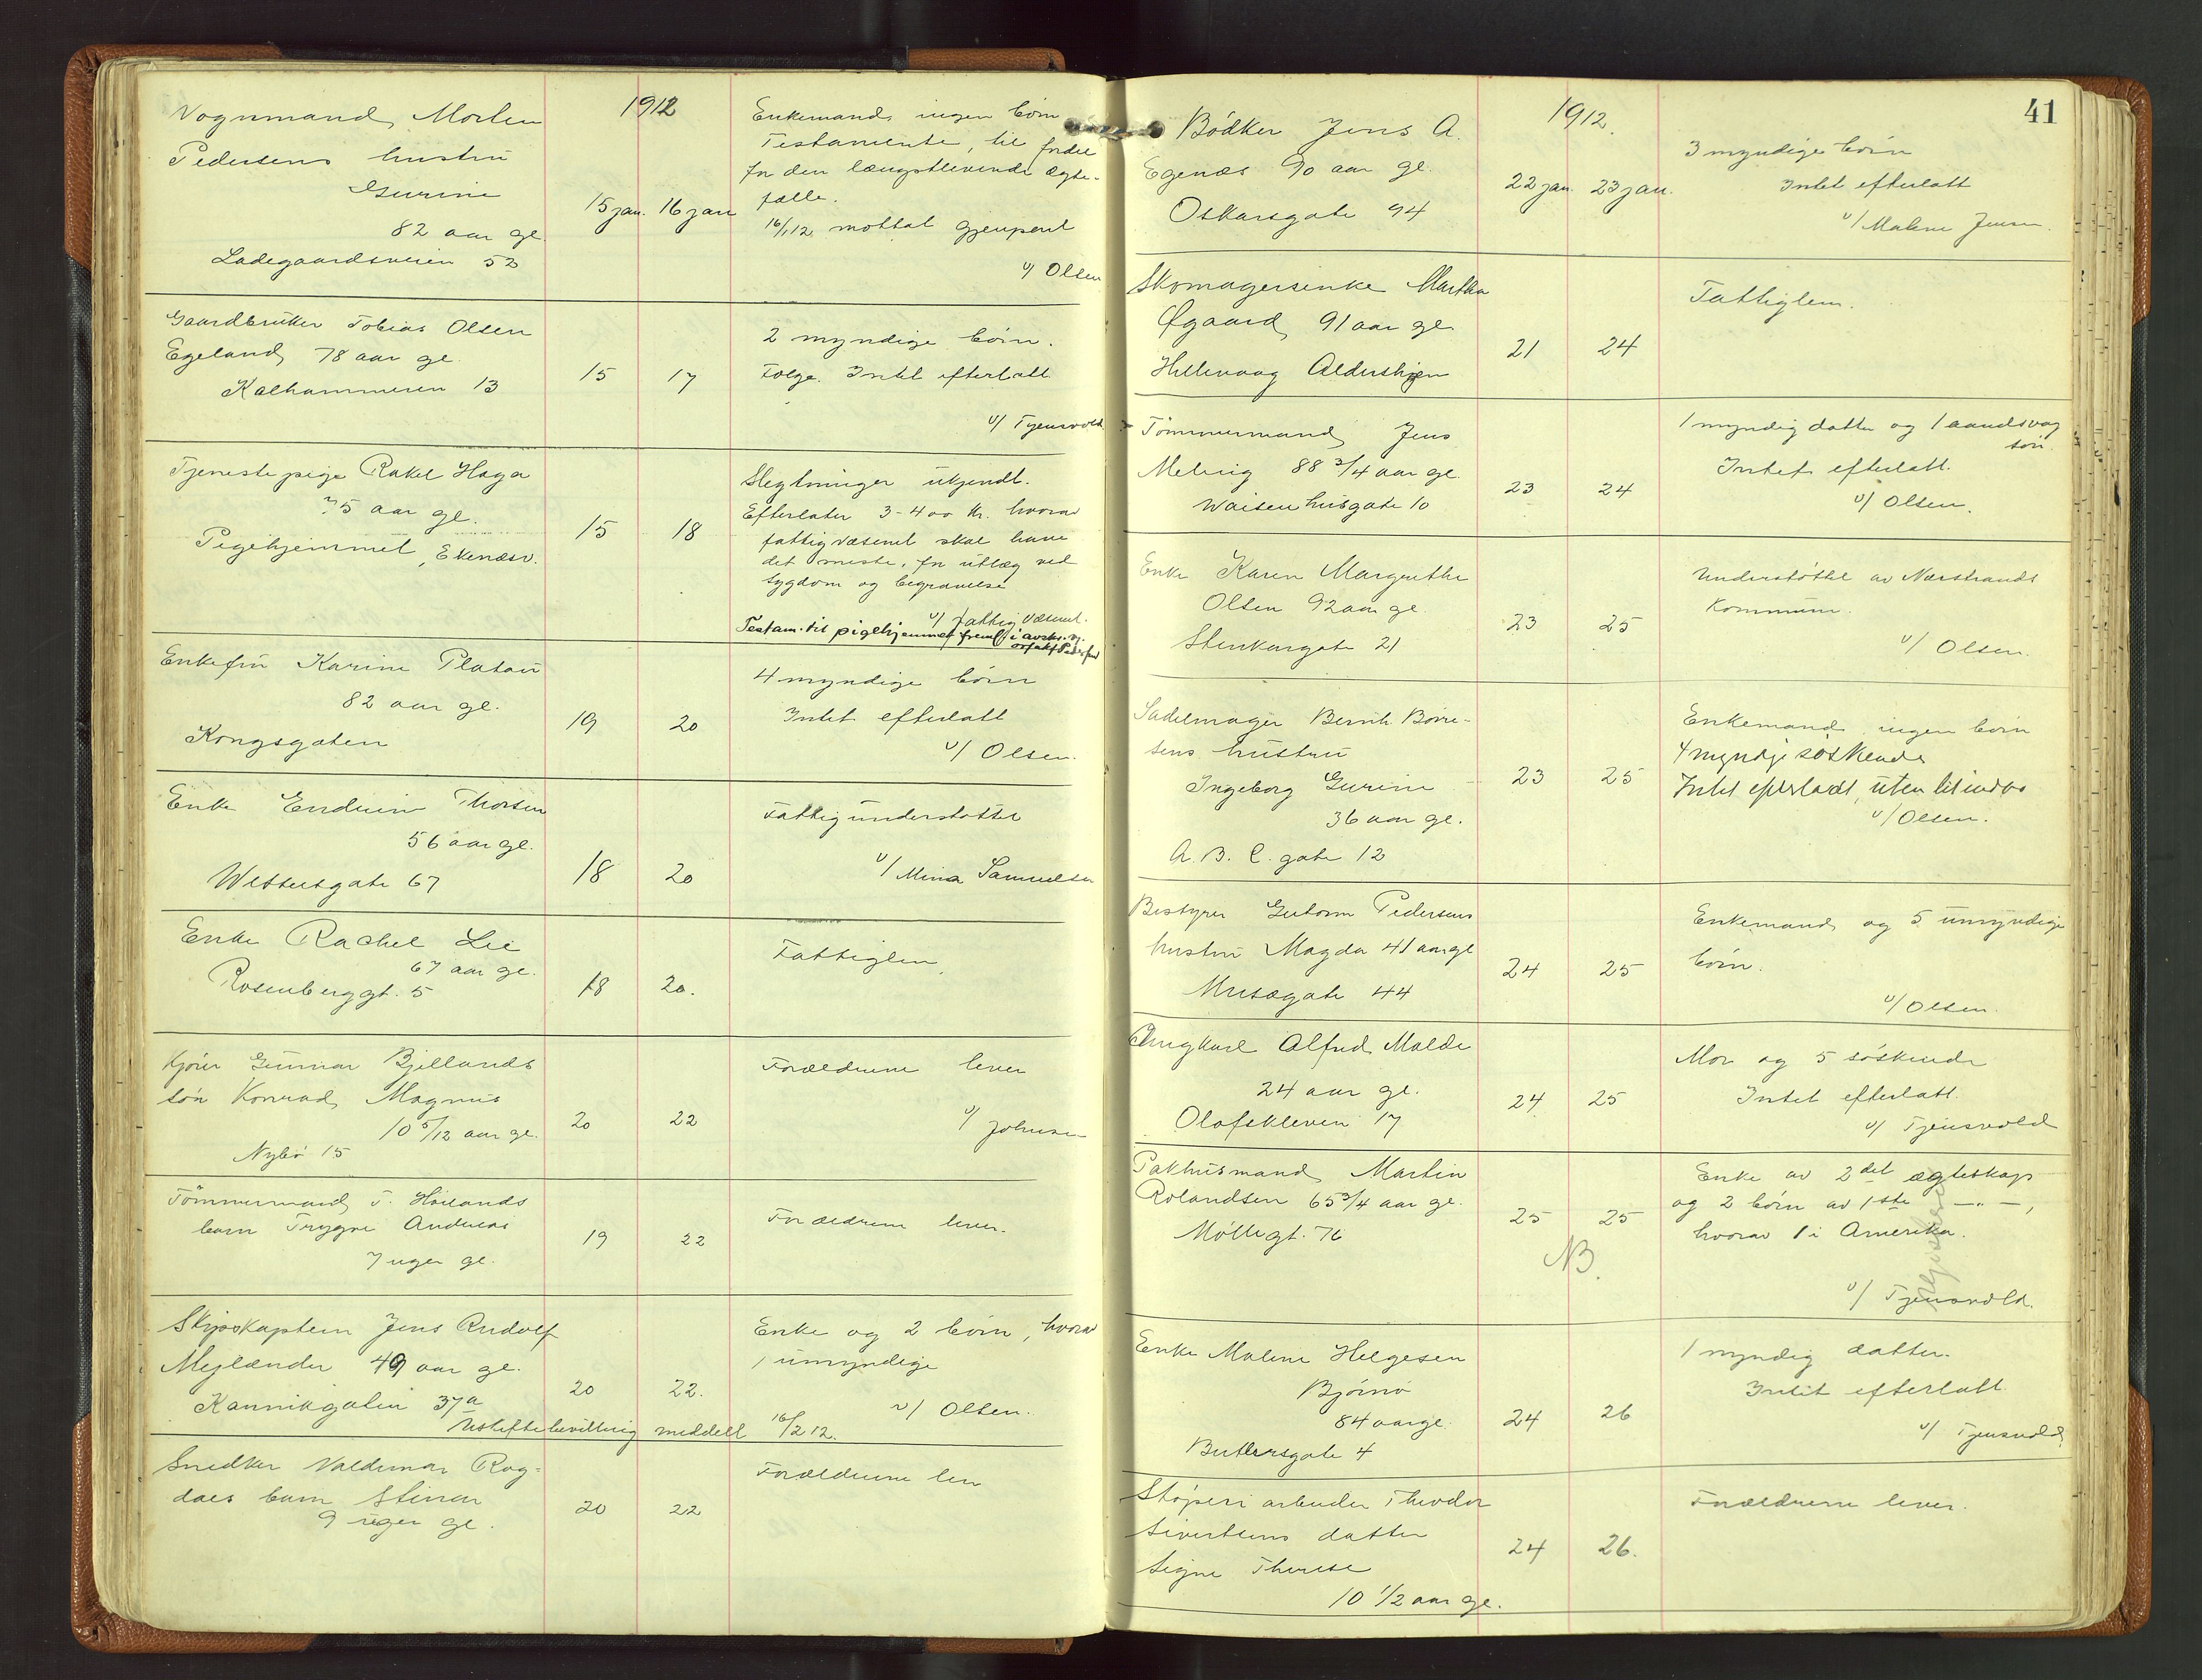 1912
Vognmand Morten
Pedersens hustru
Gurine
82 aar gl.
Ladegaardsveien 52
15 jan. 16 jan
Enkemand, ingen börn
Testamente, til fordel
for den længstlevende ægte-
fælle.
16/1 12 mottat gjenpart
v/ Olsen
Gaardbruker Tobias Olsen
Egeland, 78 aar gl.
Kalhammeren 13
15 17
2 myndige börn.
Intet efterlatt
v/ Tjensvold
Tjenestepige Rakel Haga
75 aar gl.
Pigehjemmet, Ekenæsv.
15 18
Slegtninger ukjendt.
Efterlater 3-400 kr. hvorav
fattigvæsenet skal have
det meste, for utlæg ved
sygdom og begravelse
v/ fattigvæsenet.
Testam. til pigehjemmet
Enkefru Karine Platou
82 aar gl.
Kongsgaten
19 20
4 myndige börn
Intet efterlatt
v/ Olsen.
Enke Thorsen
56 aar gl.
Wesselsgate 67
18 20
Fattigunderstøttet
v/ Mina Samuelsen
Enke Rachel Lie
67 aar gl.
Rosenberggt. 5
18 20.
Fattiglem.
Kjörer Gunnar Bjellands
sön Konrad Magnus
10 5/12 aar gl.
Nybö 15
20 22
Forældrene lever
v/ Johnsen
Tömmermand T. Hölands
barn Trygve Andreas
7 uger gl.
19 22
Forældrene lever.
Skipskaptein Jens Rudolf
Mejlænder 49 aar gl.
Kannikgaten 37a
20 22.
Enke og 2 börn, hvorav
1 umyndige
v/ Olsen.
Uskiftebevilling meddelt 16/2 12.
Snedker Valdemar Rog-
dals barn Steinar
9 uger gl.
20 22
Forældrene lev
41
1912.
Bödker Jens A.
Egenæs 90 aar gl.
Oskarsgate 94
22 jan. 23 jan.
3 myndige börn
Intet efterlatt
v/ Malene Jensen.
Skomagerenke Martha
Øgaard, 91 aar gl.
Hillevaag Aldershjem
21 24
Fattiglem.
Tömmermand Jens
Meling 88 3/4 aar gl.
Waisenhusgate 10
23 24
1 myndig datter og 1 aandsvag
sön.
Intet efterlatt.
v/ Olsen.
Enke Karen Margrethe
Olsen 92 aar gl.
Stenkargate 21
23 25
Understöttet av Nærstrands
Kommune.
v/ Olsen.
Sadelmager Bernh. Börre-
sens hustru
Ingeborg Gurine
36 aar gl.
A. B. C. gate 12
23 25
Enkemand, ingen börn
4 myndige söskende
Intet efterladt, uten litindbo
v/ Olsen.
Bestyrer Guttorm Pedersens
hustru Magda 41 aar gl
Musægate 44
24 25
Enkemand og 5 umyndige
börn.
v/ Olsen
Ungkarl Alfred Malde
24 aar gl.
Olafskleven 17
24 25
Mor og 5 söskende
Intet efterlatt.
v/ Tjensvold
Pakhusmand Martin
Rolandsen 65 3/4 aar gl.
Möllegt. 76
25 25
NB.
Enke av 2det ægteskap
og 2 börn av 1ste —„—,
hvorav 1 i Amerika.
v/ Tjensvold.
Enke Malene Helgesen
Björnö
84 aar gl.
Butlersgate 4
24 26
1 myndig datter.
Intet efterlatt.
v/ Tjensvold
Stöperiarbeider Theodor
Sivertsens datter
Signe Therese
10 1/2 aar gl.
24 26.
Forældrene lever.